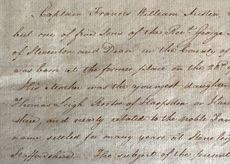 Captain Francis William Austen
but one of five Sons of the Revd. George
of Steventon and Dean in the County of
was born at the former place on the 23d.
His Mother was the youngest daughter
Thomas Leigh Rector of Harpsden in
shire, and nearly related to the noble
name settled for many years at Stoneleigh
Staffordshire. The subject of the